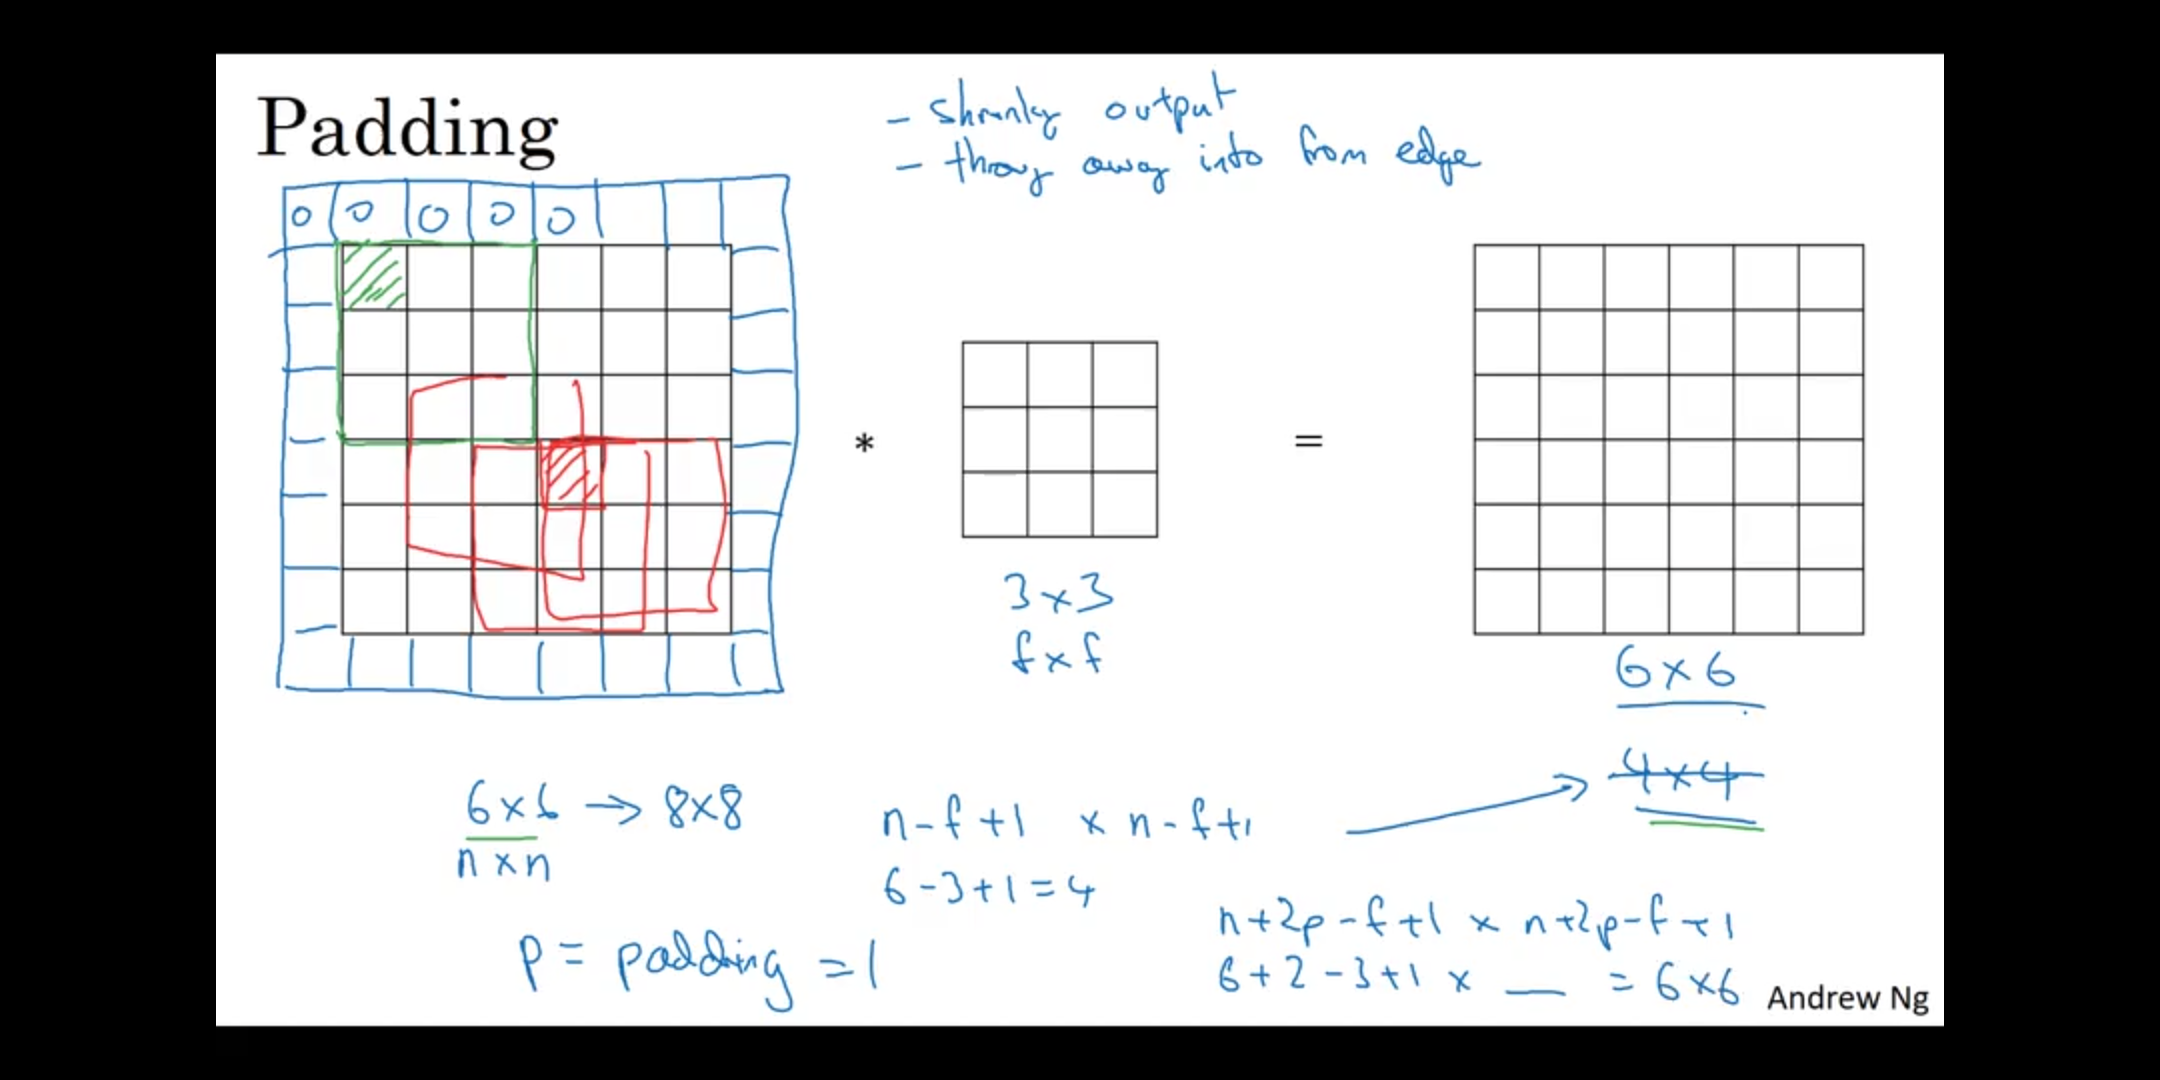 Padding
- shrinky output
- throwy away info from edge
0 0 0 0 0
*
=
3×3
f×f
6×6
4×4
6×6 → 8×8
n×n
n-f+1 × n-f+1
6-3+1=4
p = padding = 1
n+2p-f+1 × n+2p-f+1
6+2-3+1 × __ = 6×6
Andrew Ng